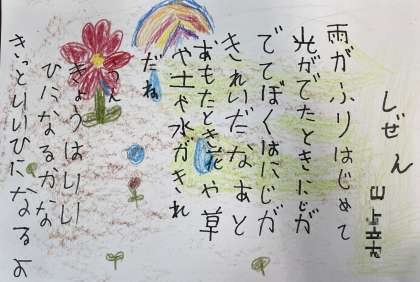 しぜん
山上
雨がふりはじめて
光がでたときにじが
でてぼくはにじが
きれいだなあと
おもたとき花や草
や土や水がきれ
だね
きょうはいい
ひになるかな
きっといいひになるよ